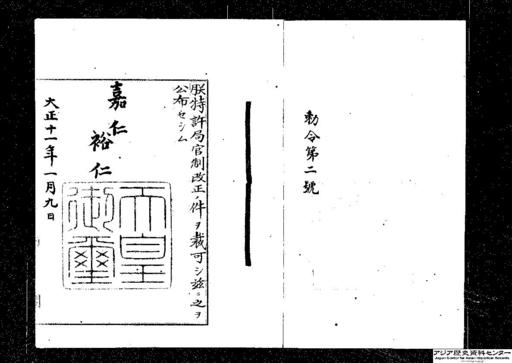 勅令第二號
朕特許局官制改正ノ件ヲ裁可シ茲ニ之ヲ
公布セシム
嘉仁
裕仁
天皇
御璽
大正十一年一月九日
アジア歴史資料センター
Japan Center for Asian Historical Records